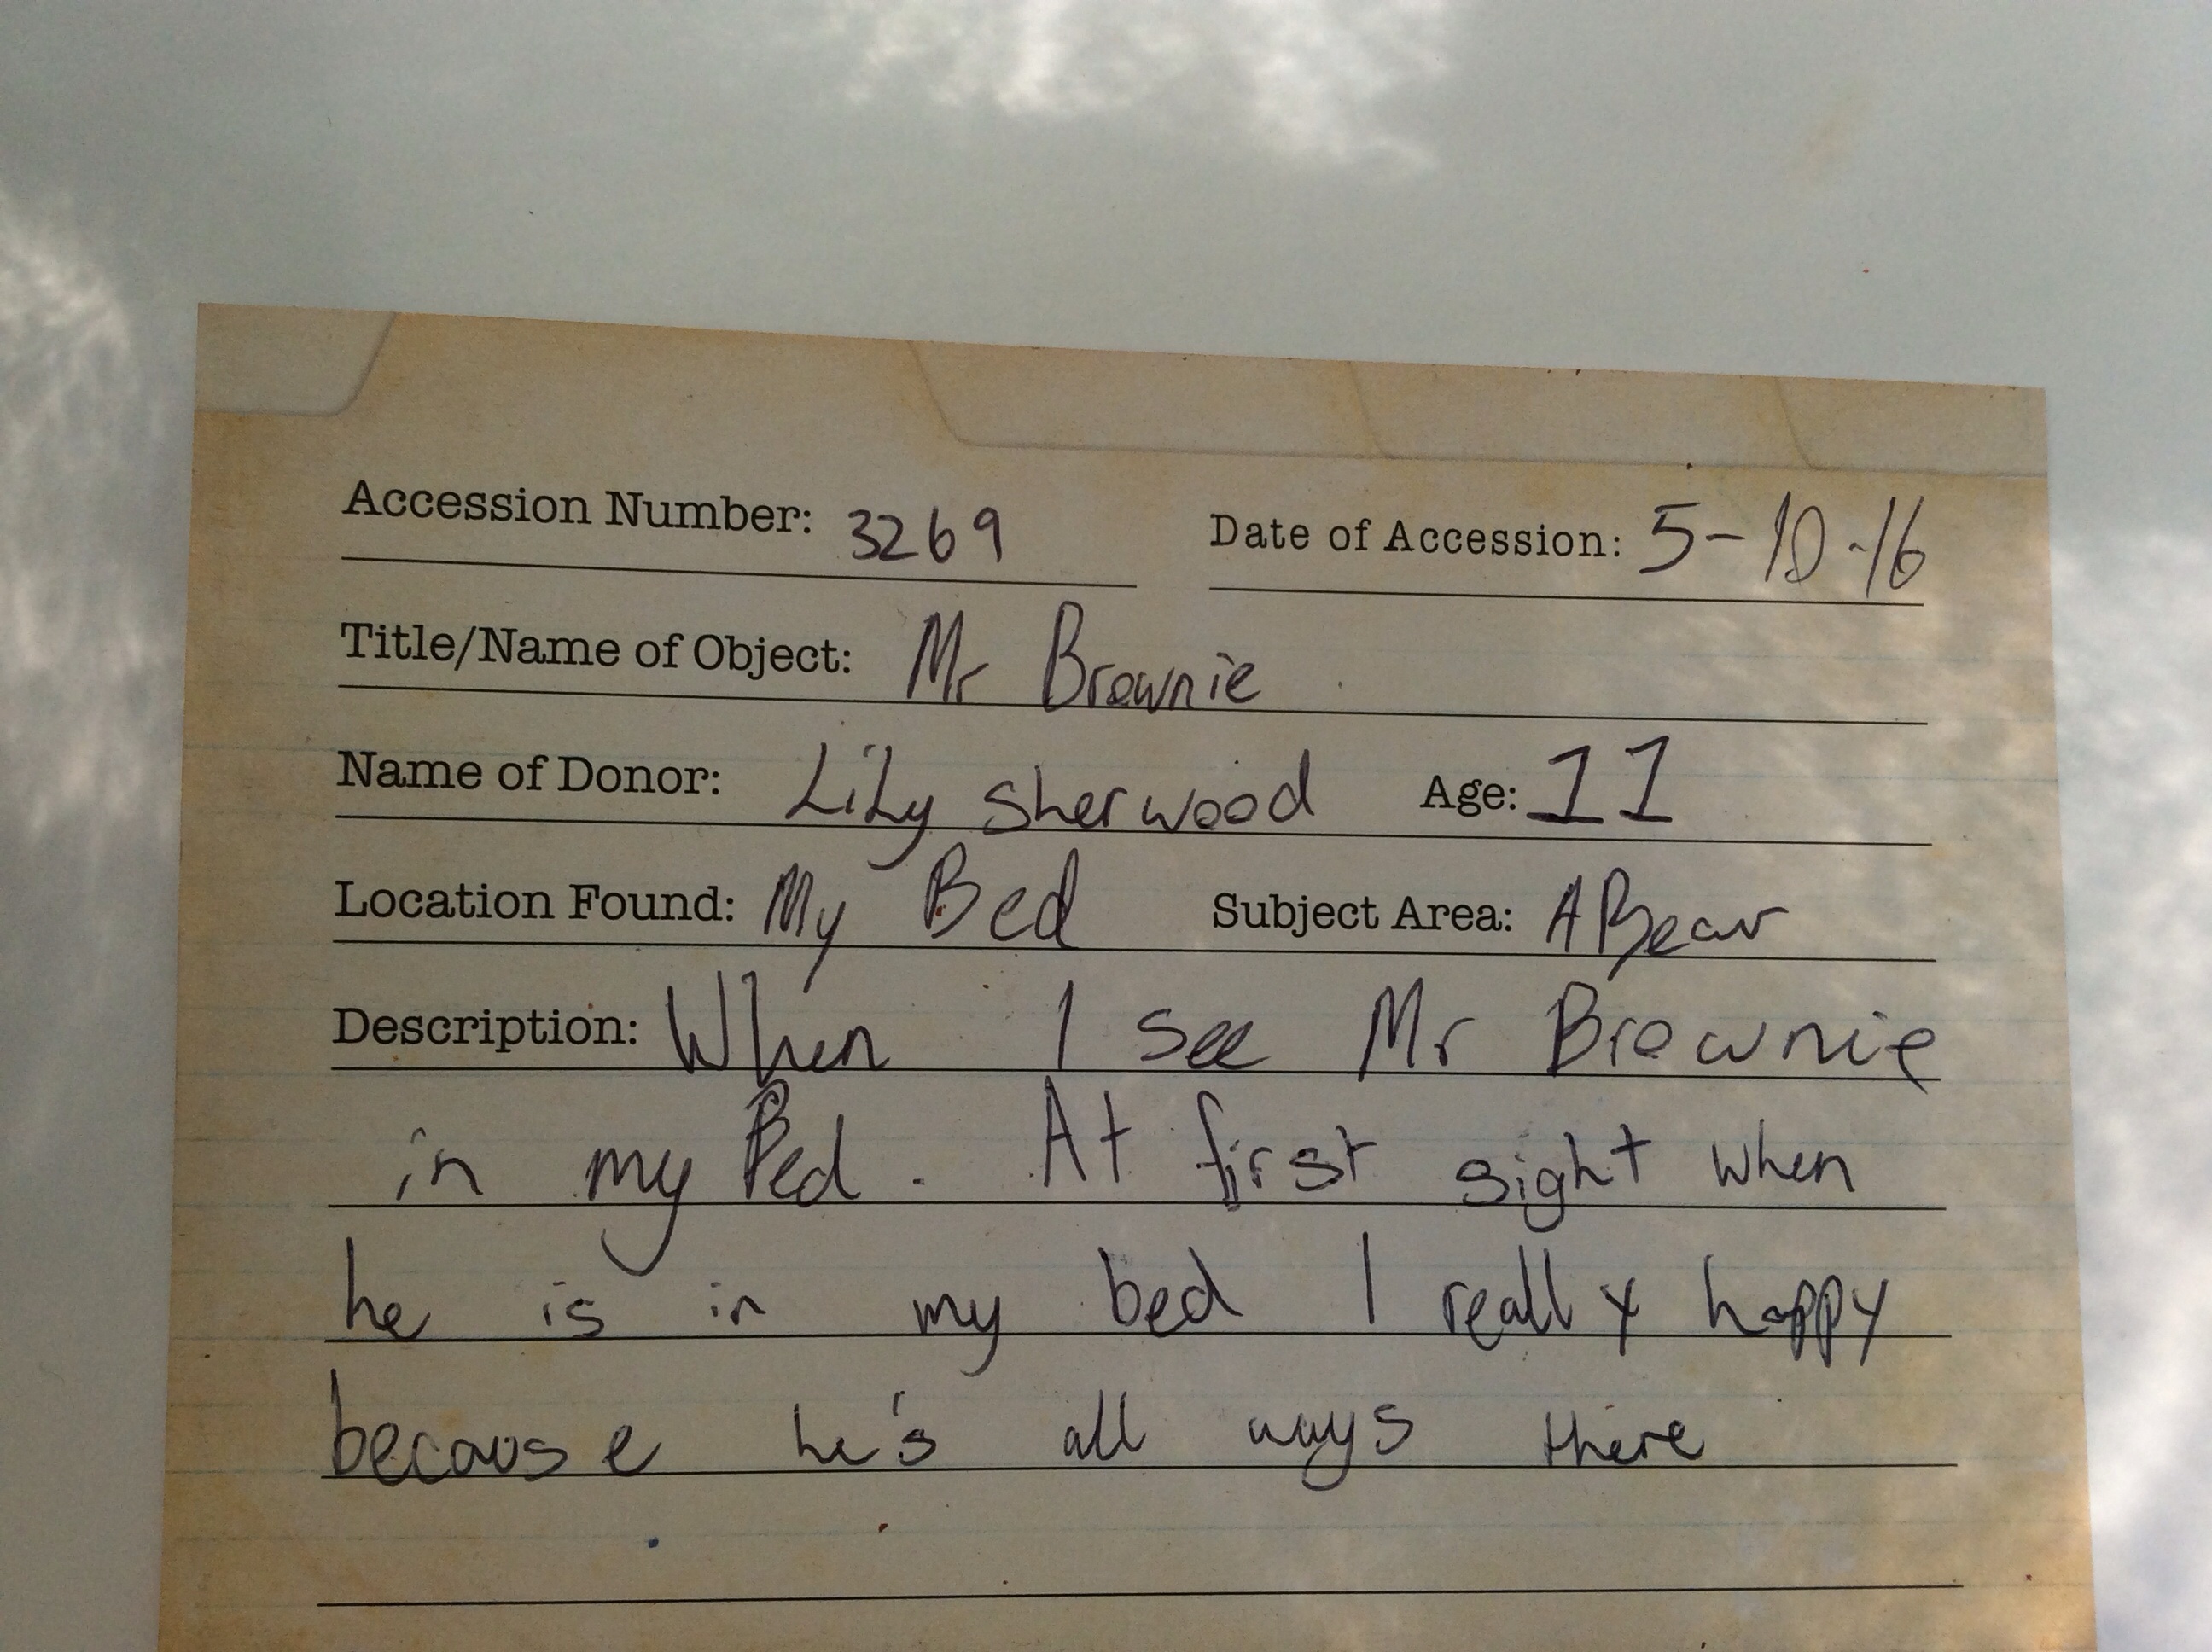 Accession Number: 3269 Date of Accession: 5-10-16
Title/Name of Object: Mr Brownie
Name of Donor: Lily sherwood Age: 11
Location Found: My Bed Subject Area: A Bear
Description: When I see Mr Brownie
in my Bed. At first sight when
he is in my bed I really happy
because he's all ways there